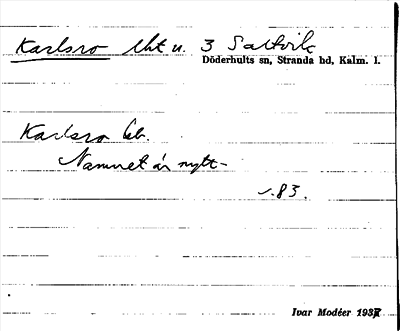 Karlsro lht u. 3 Saltvik
Döderhults sn, Stranda hd, Kalm. l.
Karlsro lb.
Namnet är nytt
s. 83.
Ivar Modéer 1937